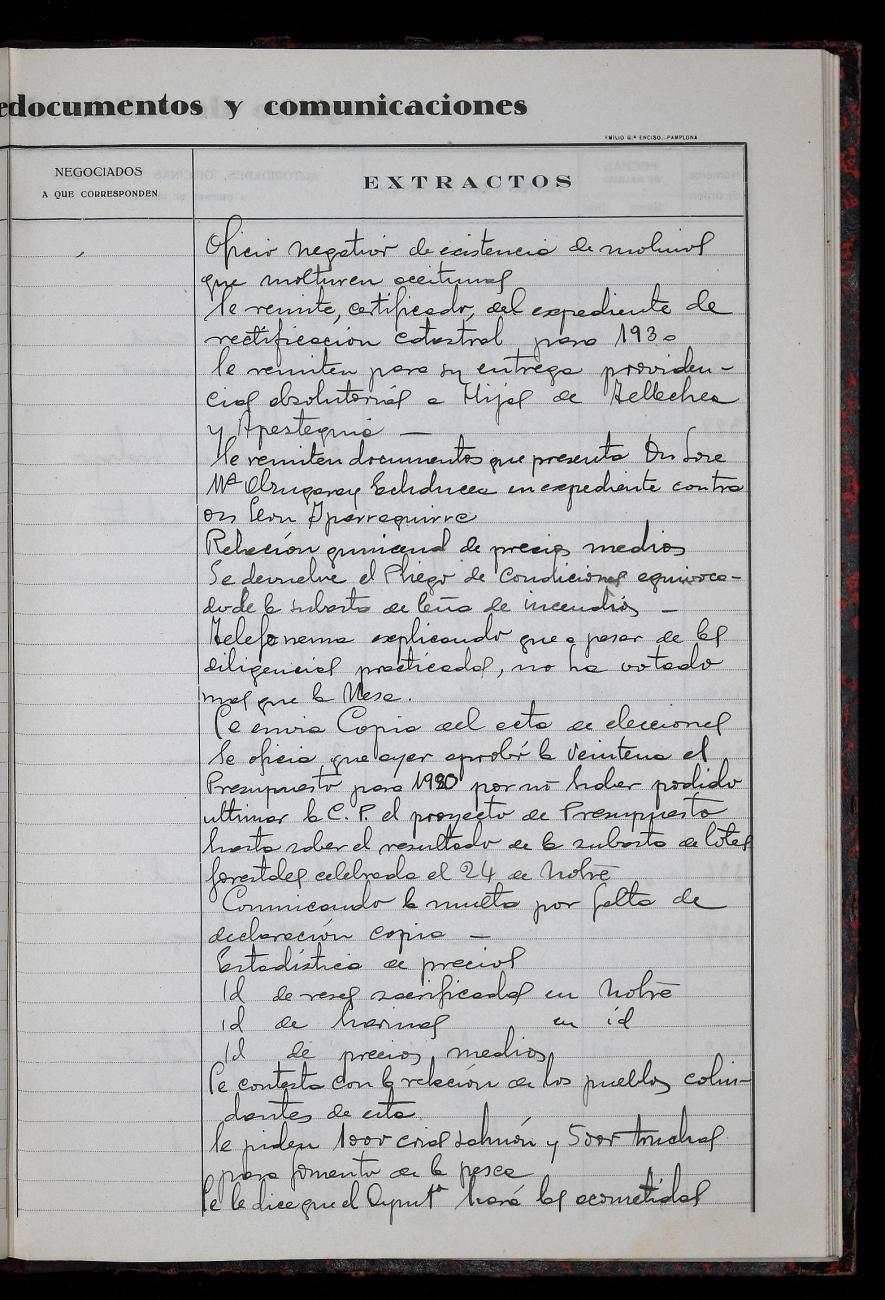 edocumentos y comunicaciones
EMILIO G.ª ENCISO.-PAMPLONA
NEGOCIADOS
A QUE CORRESPONDEN
EXTRACTOS
Oficio negativo de existencia de molinos
que molturen aceitunas
Se remite, certificado, del expediente de
rectificación catastral para 1930
Se remiten para su entrega providen-
cias absolutorias a Hijas de Tellechea
y Apesteguia —
Se remiten documentos que presenta Dn Jose
Mª Echduecea en expediente contra
Dn Leon Yparraguirre
Relación quincenal de precios medios
Se devuelve el Pliego de Condiciones equivoca-
do de la subasta de leña de incendios —
Telefonema explicando que a pesar de las
diligencias practicadas, no ha votado
mas que la Mesa.
Se envia Copia del acta de elecciones
Se oficia que ayer aprobó la Veintena el
Presupuesto para 1930 por no haber podido
ultimar la C. P. el proyecto de Presupuesto
hasta saber el resultado de la subasta de lotes
forestales celebrada el 24 de Nobre
Comunicando la multa por falta de
declaración copia —
Estadística de precios
Id de reses sacrificadas en Nobre
id de harinas en id
Id de precios medios
Se contesta con la relación de los pueblos colin-
dantes de esta
Se piden 1000 crias salmón y 5000 truchas
para fomento de la pesca
Se le dice que el Ayuntº hará las acometidas